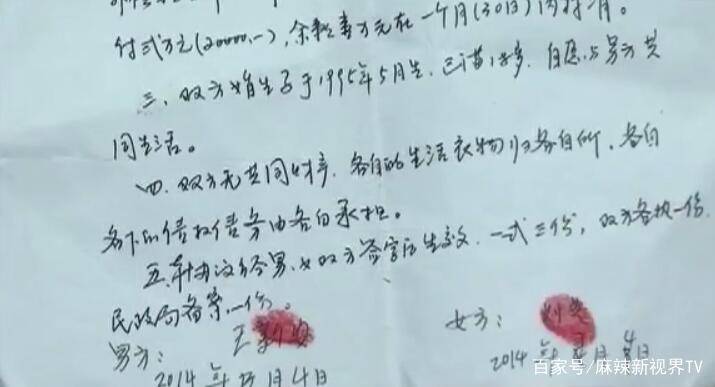 付弍万元(20000.—),余款叁万元在一个月(30日)内付清。
三、双方婚生子于1995年5月生,已满18岁,自愿与男方共
同生活。
四、双方无共同财产,各自的生活衣物归各自所,各自
名下的债权债务由各自承担。
五、本协议经男、女双方签字后生效,一式三份,双方各执一份,
民政局备案一份。
男方:王
女方:刘
2014年 月4日
2014年 月4日
百家号/麻辣新视界TV